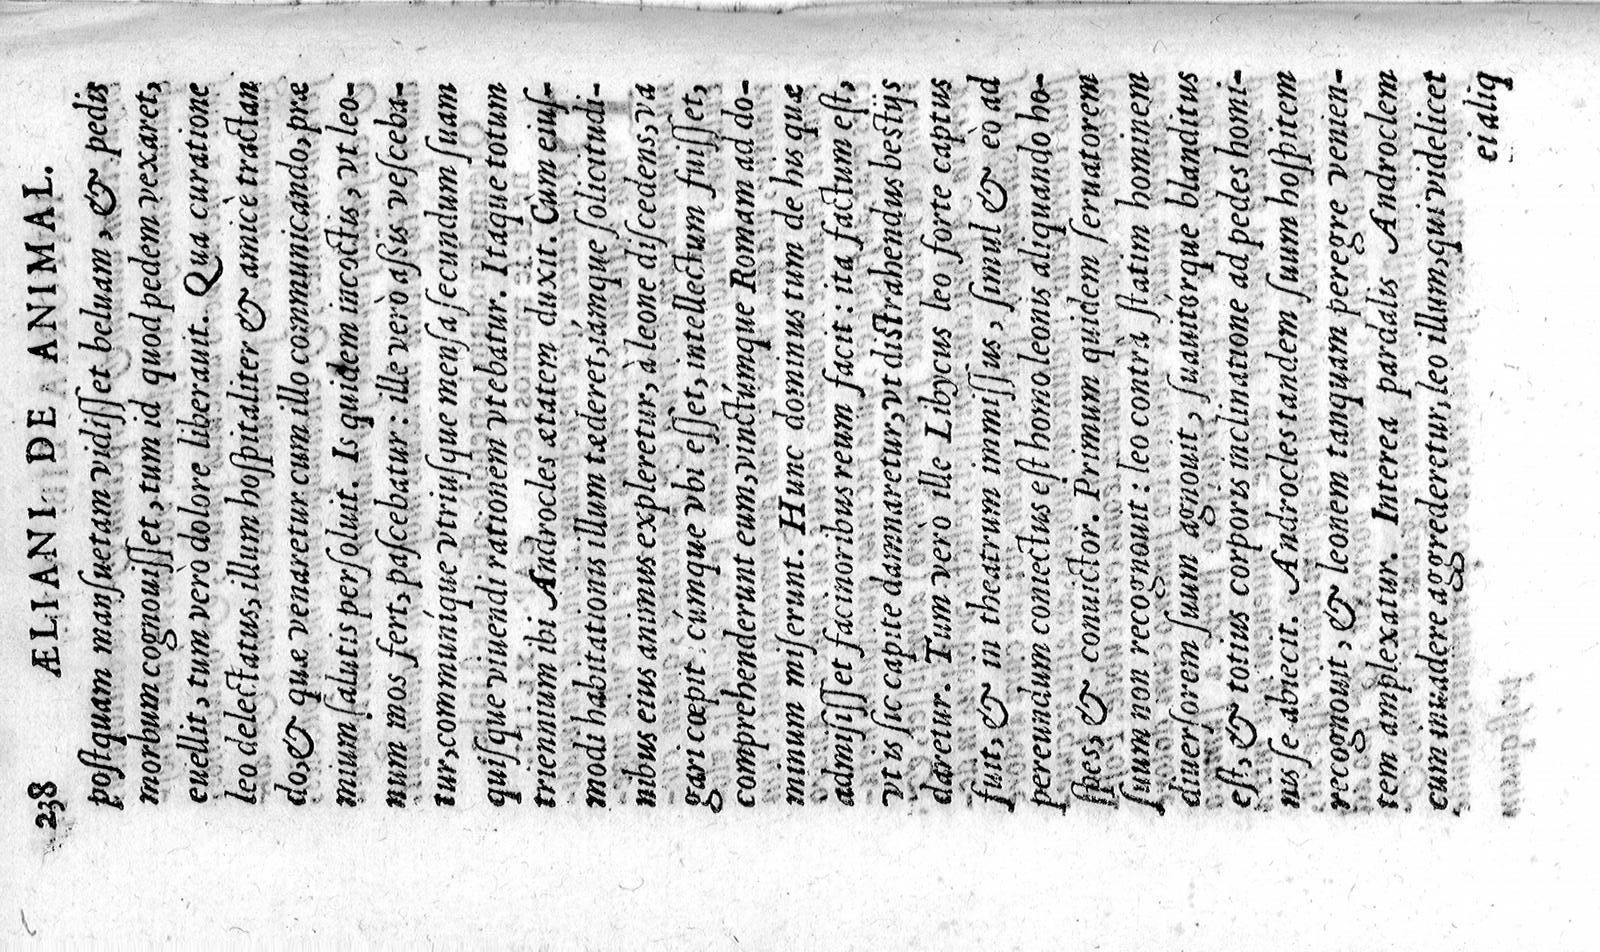 238 ÆLIANI DE ANIMAL.
poſtquam manſuetam vidiſſet beluam, & pedis
morbum cognouiſſet, tum id quod pedem vexaret,
euellit, tum verò dolore liberauit. Qua curatione
leo delectatus, illum hoſpitaliter & amicè tractan
do, & quæ venaretur cum illo communicando, præ
mium ſalutis perſoluit. Is quidem incoctis, vt leo-
num mos fert, paſcebatur: ille verò aſsis veſceba-
tur, communíque vtriuſque menſa ſecundum ſuam
quiſque viuendi rationem vtebatur. Itaque totum
triennium ibi Androcles ætatem duxit. Cùm eiuſ-
modi habitationis illum tæderet, iámque ſolicitudi-
nibus eius animus expleretur, à leone diſcedens, va
gari cœpit: cúmque vbi eſſet, intellectum fuiſſet,
comprehenderunt eum, vinctúmque Romam ad do-
minum miſerunt. Hunc dominus tum de his quæ
admiſiſſet facinoribus reum facit: ita factum eſt,
vt is ſic capite damnaretur, vt diſtrahendus beſtijs
daretur. Tum verò ille Libycus leo forte captus
fuit, & in theatrum immiſſus, ſimul & eò ad
pereundum coniectus eſt homo leonis aliquando ho-
ſpes, & conuictor. Primum quidem ſeruatorem
ſuum non recognouit: leo contrà ſtatim hominem
diuerſorem ſuum agnouit, ſuauitérque blanditus
eſt, & totius corporis inclinatione ad pedes homi-
nis ſe abiecit. Androcles tandem ſuum hoſpitem
recognouit, & leonem tanquam peregre venien-
tem amplexatur. Interea pardalis Androclem
cum inuadere aggrederetur, leo illum, qui videlicet
ei aliq